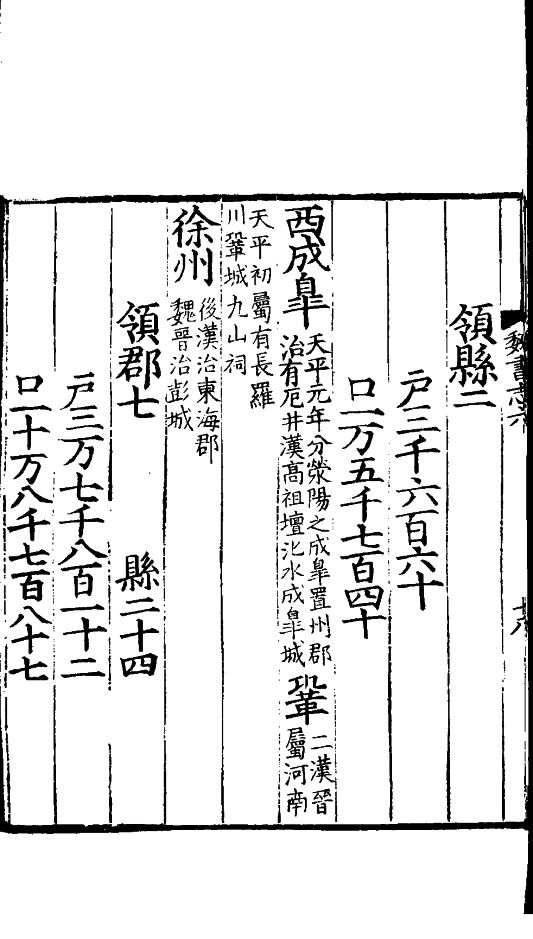 魏書志六
領縣二
户三千六百六十
口一万五千七百四十
西成臯 天平元年分滎陽之成臯置州郡
治有厄井漢高祖壇汜水成臯城
鞏 二漢晉
屬河南
天平初屬有長羅
川鞏城九山祠
徐州 後漢治東海郡
魏晉治彭城
領郡七 縣二十四
户三万七千八百一十二
口一十万八千七百八十七